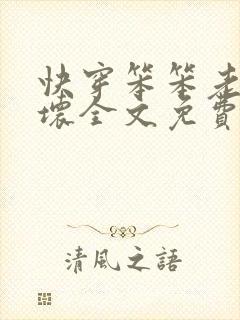 快穿笨笨走
壞全文免費
清風之語